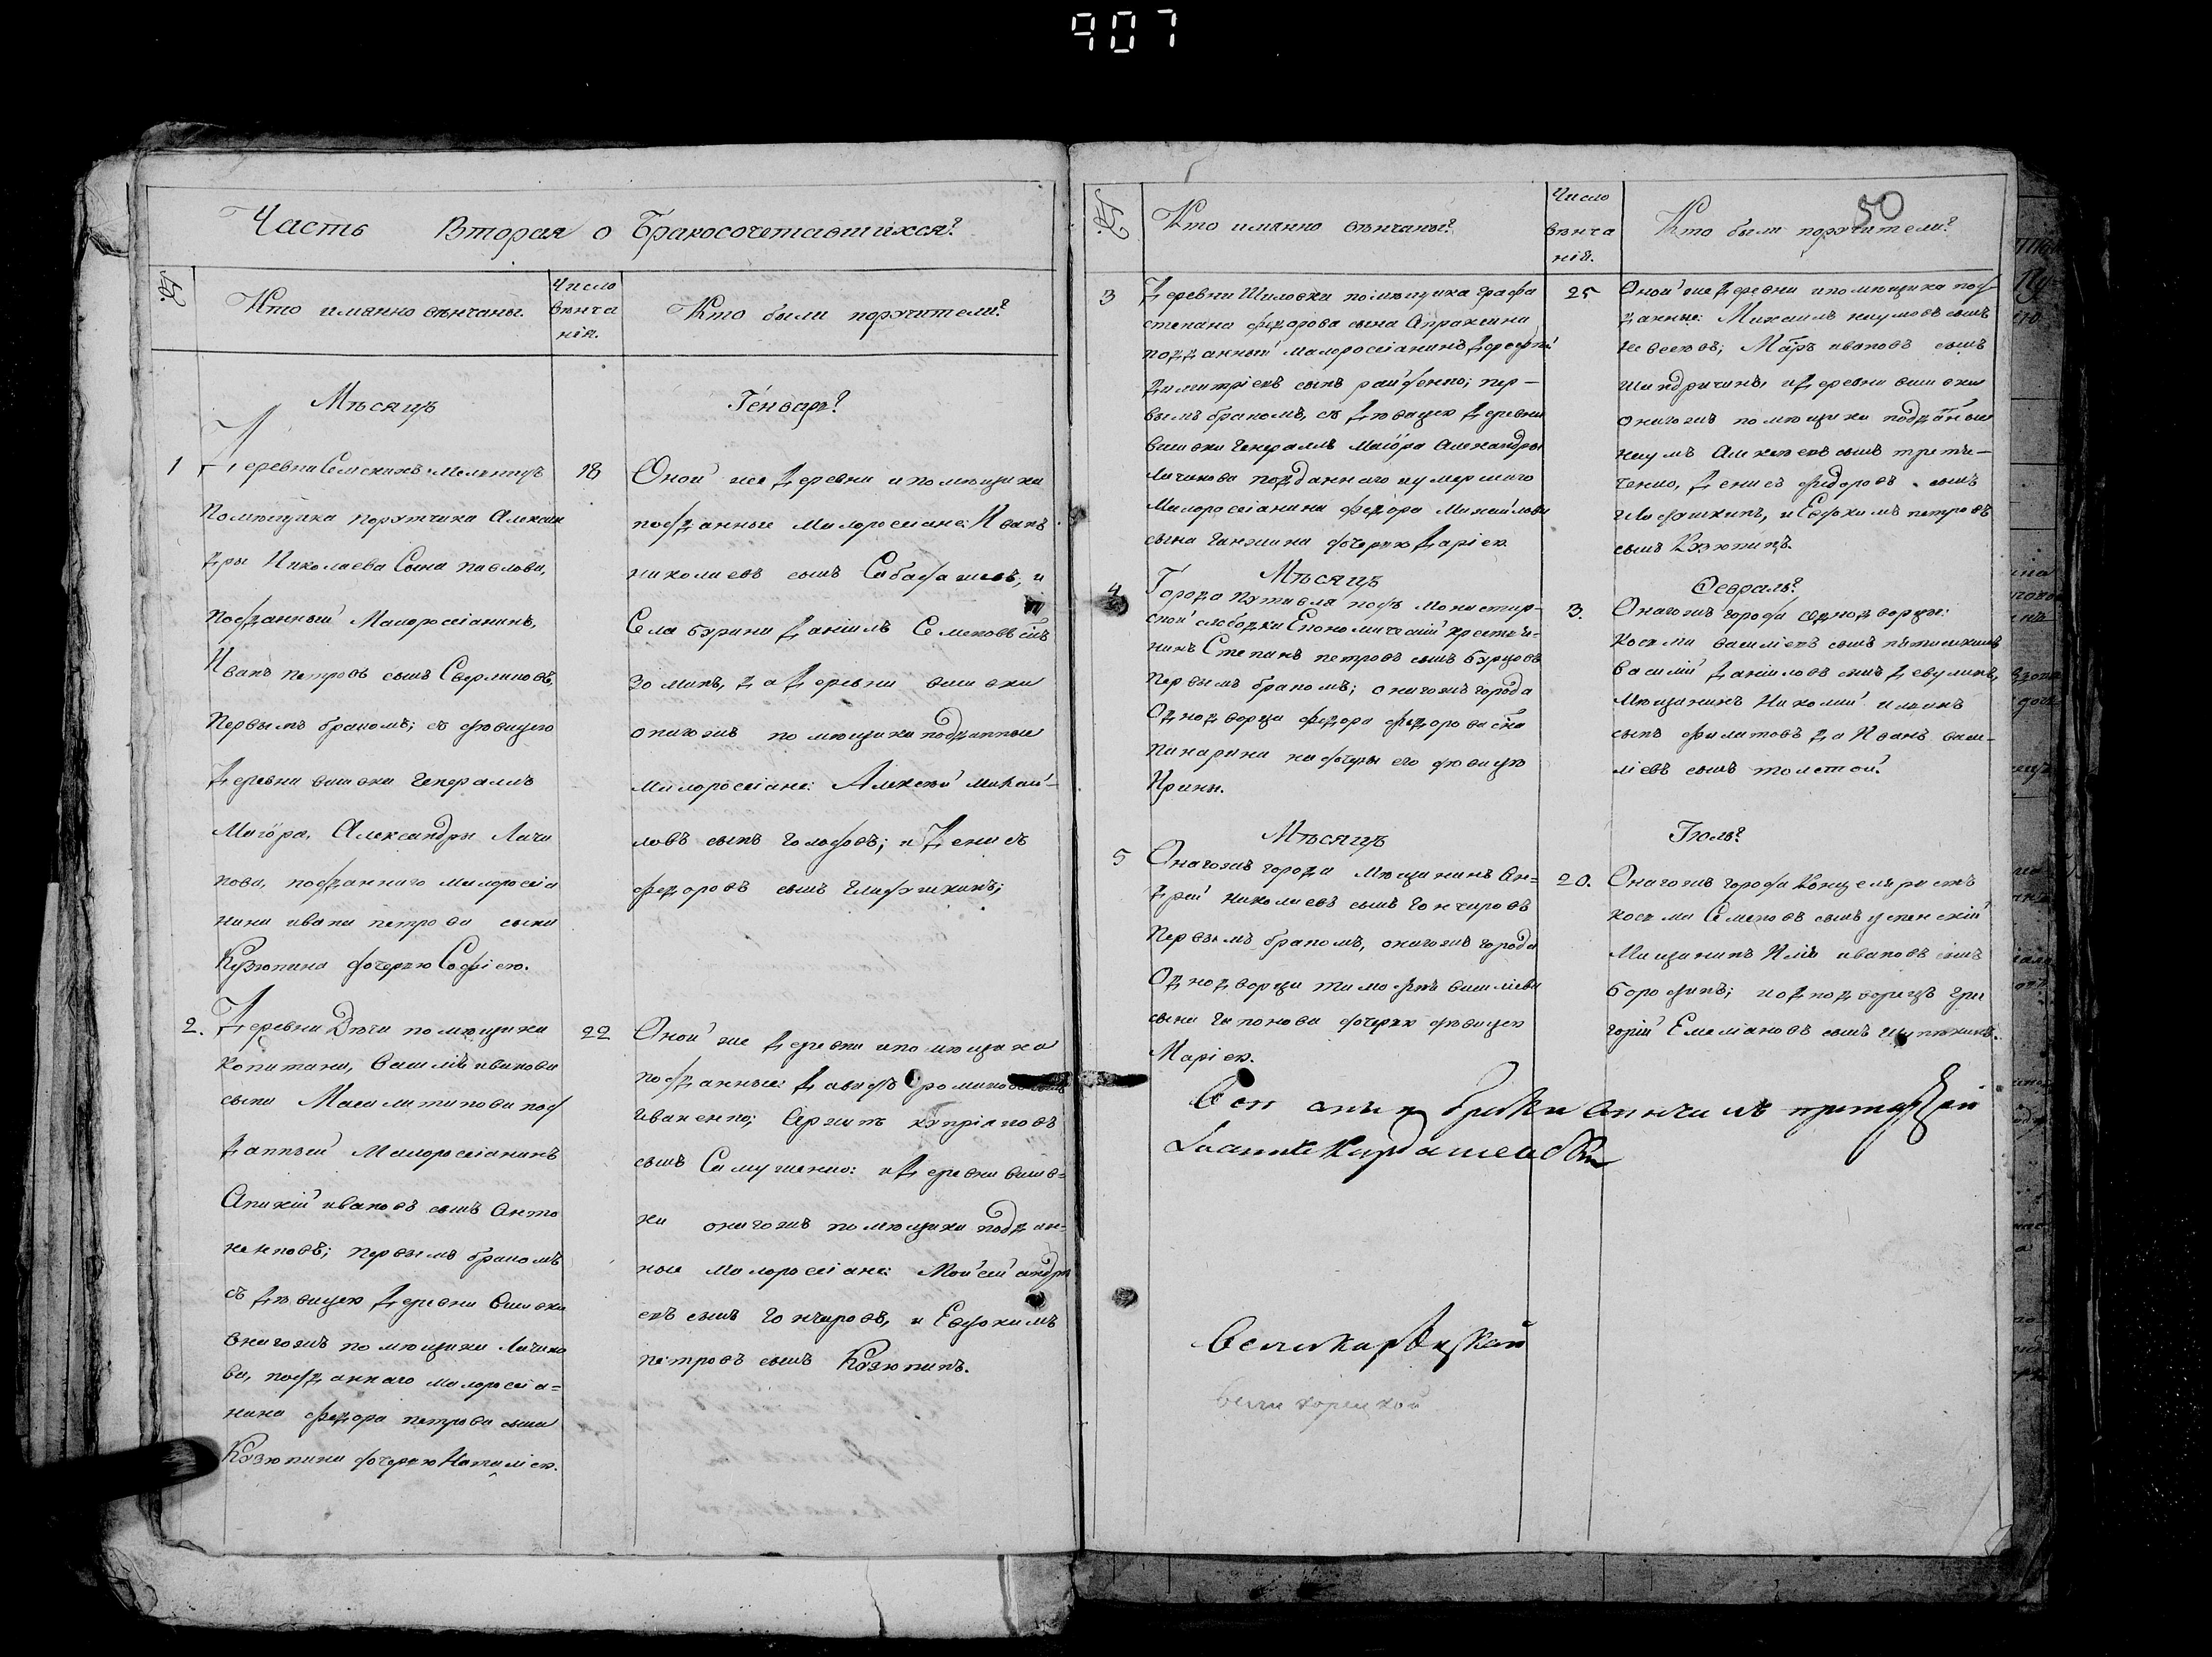 907
Часть Вторая о Бракосочетавшихся?
№
Кто иманно вѣнчаны.
Число
вѣнча
нія.
Кто были поручители?
Мѣсяцъ
Генварь?
1
Деревни
Помѣщика порутчика Алексан
дры Николаева Сына павлова,
Подданный Малоросіанинъ,
Иванъ петровъ сынъ Сверликовъ,
Первымъ бракомъ; съ дѣвицею
Деревни вишовки Генералъ
Маіора, Александры Личи
кова, подданнаго малоросіа
нина ивана петрова сына
Кузюпина дочерью Софіею.
18
Оной же деревни и помѣщика
подданные малоросіане: Иванъ
николаевъ сынъ и
Села бурини Даніилъ Семеновъ снъ
да деревни вишовки
онагожъ помѣщика подданные
малоросіане: Алексѣй михай-
ловъ сынъ голодовъ; и Денисъ
федоровъ сынъ
2.
Деревни помѣщика
капитана, Василія иванова
сына под
данный Малоросіанинъ
ивановъ сынъ Анто
ненковъ; первымъ бракомъ
съ дѣвицею Деревни вишовки
онагожъ помѣщика Личико
ва, подданнаго малоросіа=
нина федора петрова сына
Кузюпина дочерью Наталіею.
22
Оной же деревни и помѣщика
подданные: Давидъ
иваненко; купріяновъ
сынъ и Деревни вишов=
ки онагожъ помѣщика поддан=
ные малоросіане: Мойсей андре
евъ сынъ гончаровъ, и Евдокимъ
петровъ сынъ Кузюпинъ.
50
№
Кто иманно вѣнчаны?
Число
вѣнча
нія.
Кто были поручители?
3
Деревни Шиловки помѣщика графа
степана федорова сына Апраксина
подданный малоросіанинъ Дорофѣй
димитріевъ сынъ райденко; пер-
вымъ бракомъ, съ дѣвицею Деревни
вишовки Генералъ Маіора Александры
Личикова подданнаго умершаго
Малоросіанина федора Михайлова
сына ганжина дочерью Даріею.
25
Оной же деревни и помѣщика под
данные: Михаилъ наумовъ сынъ
ивановъ сынъ
и деревни вишовки
онагожъ помѣщика подданые
наумъ Алексеевъ сынъ трети-
ченко, Денисъ федоровъ сынъ
и Евдокимъ петровъ
сынъ Кузюпинъ.
Мѣсяцъ
Февраль?
4
Города путивля подъ монастир-
ской слободки Економическій крестья-
нинъ Степанъ петровъ сынъ бурцовъ
первымъ бракомъ; онагожъ города
Однодворца федора федорова сна
пинарина на дочеры его дѣвицѣ
Ирины.
3.
Онагожъ города однодворцы:
косьма василіевъ сынъ
василій Даніиловъ сынъ Девулинъ,
мѣщанинъ Николай илинъ
сынъ филатовъ да Иванъ васи-
ліевъ сынъ толстой.
Мѣсяцъ
Іюль?
5
Онагожъ города мѣщанинъ Ан=
дрей николаевъ сынъ гончаровъ
Первымъ бракомъ, онагожъ города
Однодворца тимофѣя василіева
сына гапонова дочерью дѣвицею
Маріею.
20.
Онагожъ города Канцеляристъ
косьма Семеновъ сынъ успенскій
Мищанинъ Илія ивановъ сынъ
бородинъ; и однодворецъ гри
горій Емеліановъ сынъ
Вси браки вѣнчалъ протоіерей
Іоаннъ Кардашевскій
Великорѣцкой
великорецкой